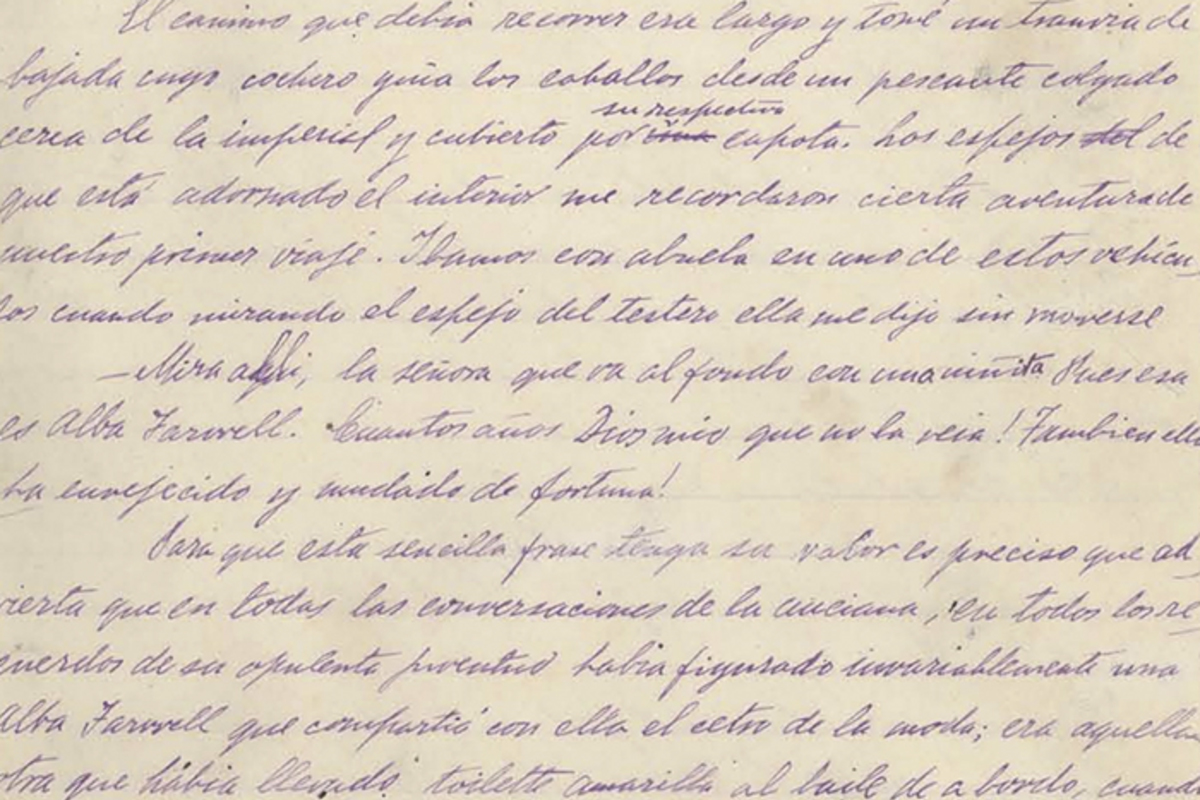 El camino que debia recorrer era largo y tomé un tranvia de
bajada cuyo cochero guia los caballos desde un pescante colgado
su respectiva
cerca de la imperial y cubierto por una capota. Los espejos del de
que está adornado el interior me recordaron cierta aventura de
nuestro primer viaje. Ibamos con abuela en uno de estos vehicu
los cuando mirando el espejo del testero ella me dijo sin moverse
—Mira alli, la señora que va al fondo con una niñita Pues esa
es Alba Farwell. Cuantos años Dios mio que no la veia! Tambien ella
ha envejecido y mudado de fortuna!
Para que esta sencilla frase tenga su valor es preciso que ad
vierta que en todas las conversaciones de la anciana, en todos los re
cuerdos de su opulenta juventud habia figurado invariablemente una
Alba Farwell que compartió con ella el cetro de la moda; era aquella
otra que habia llevado toilette amarilla al baile de a bordo, cuando